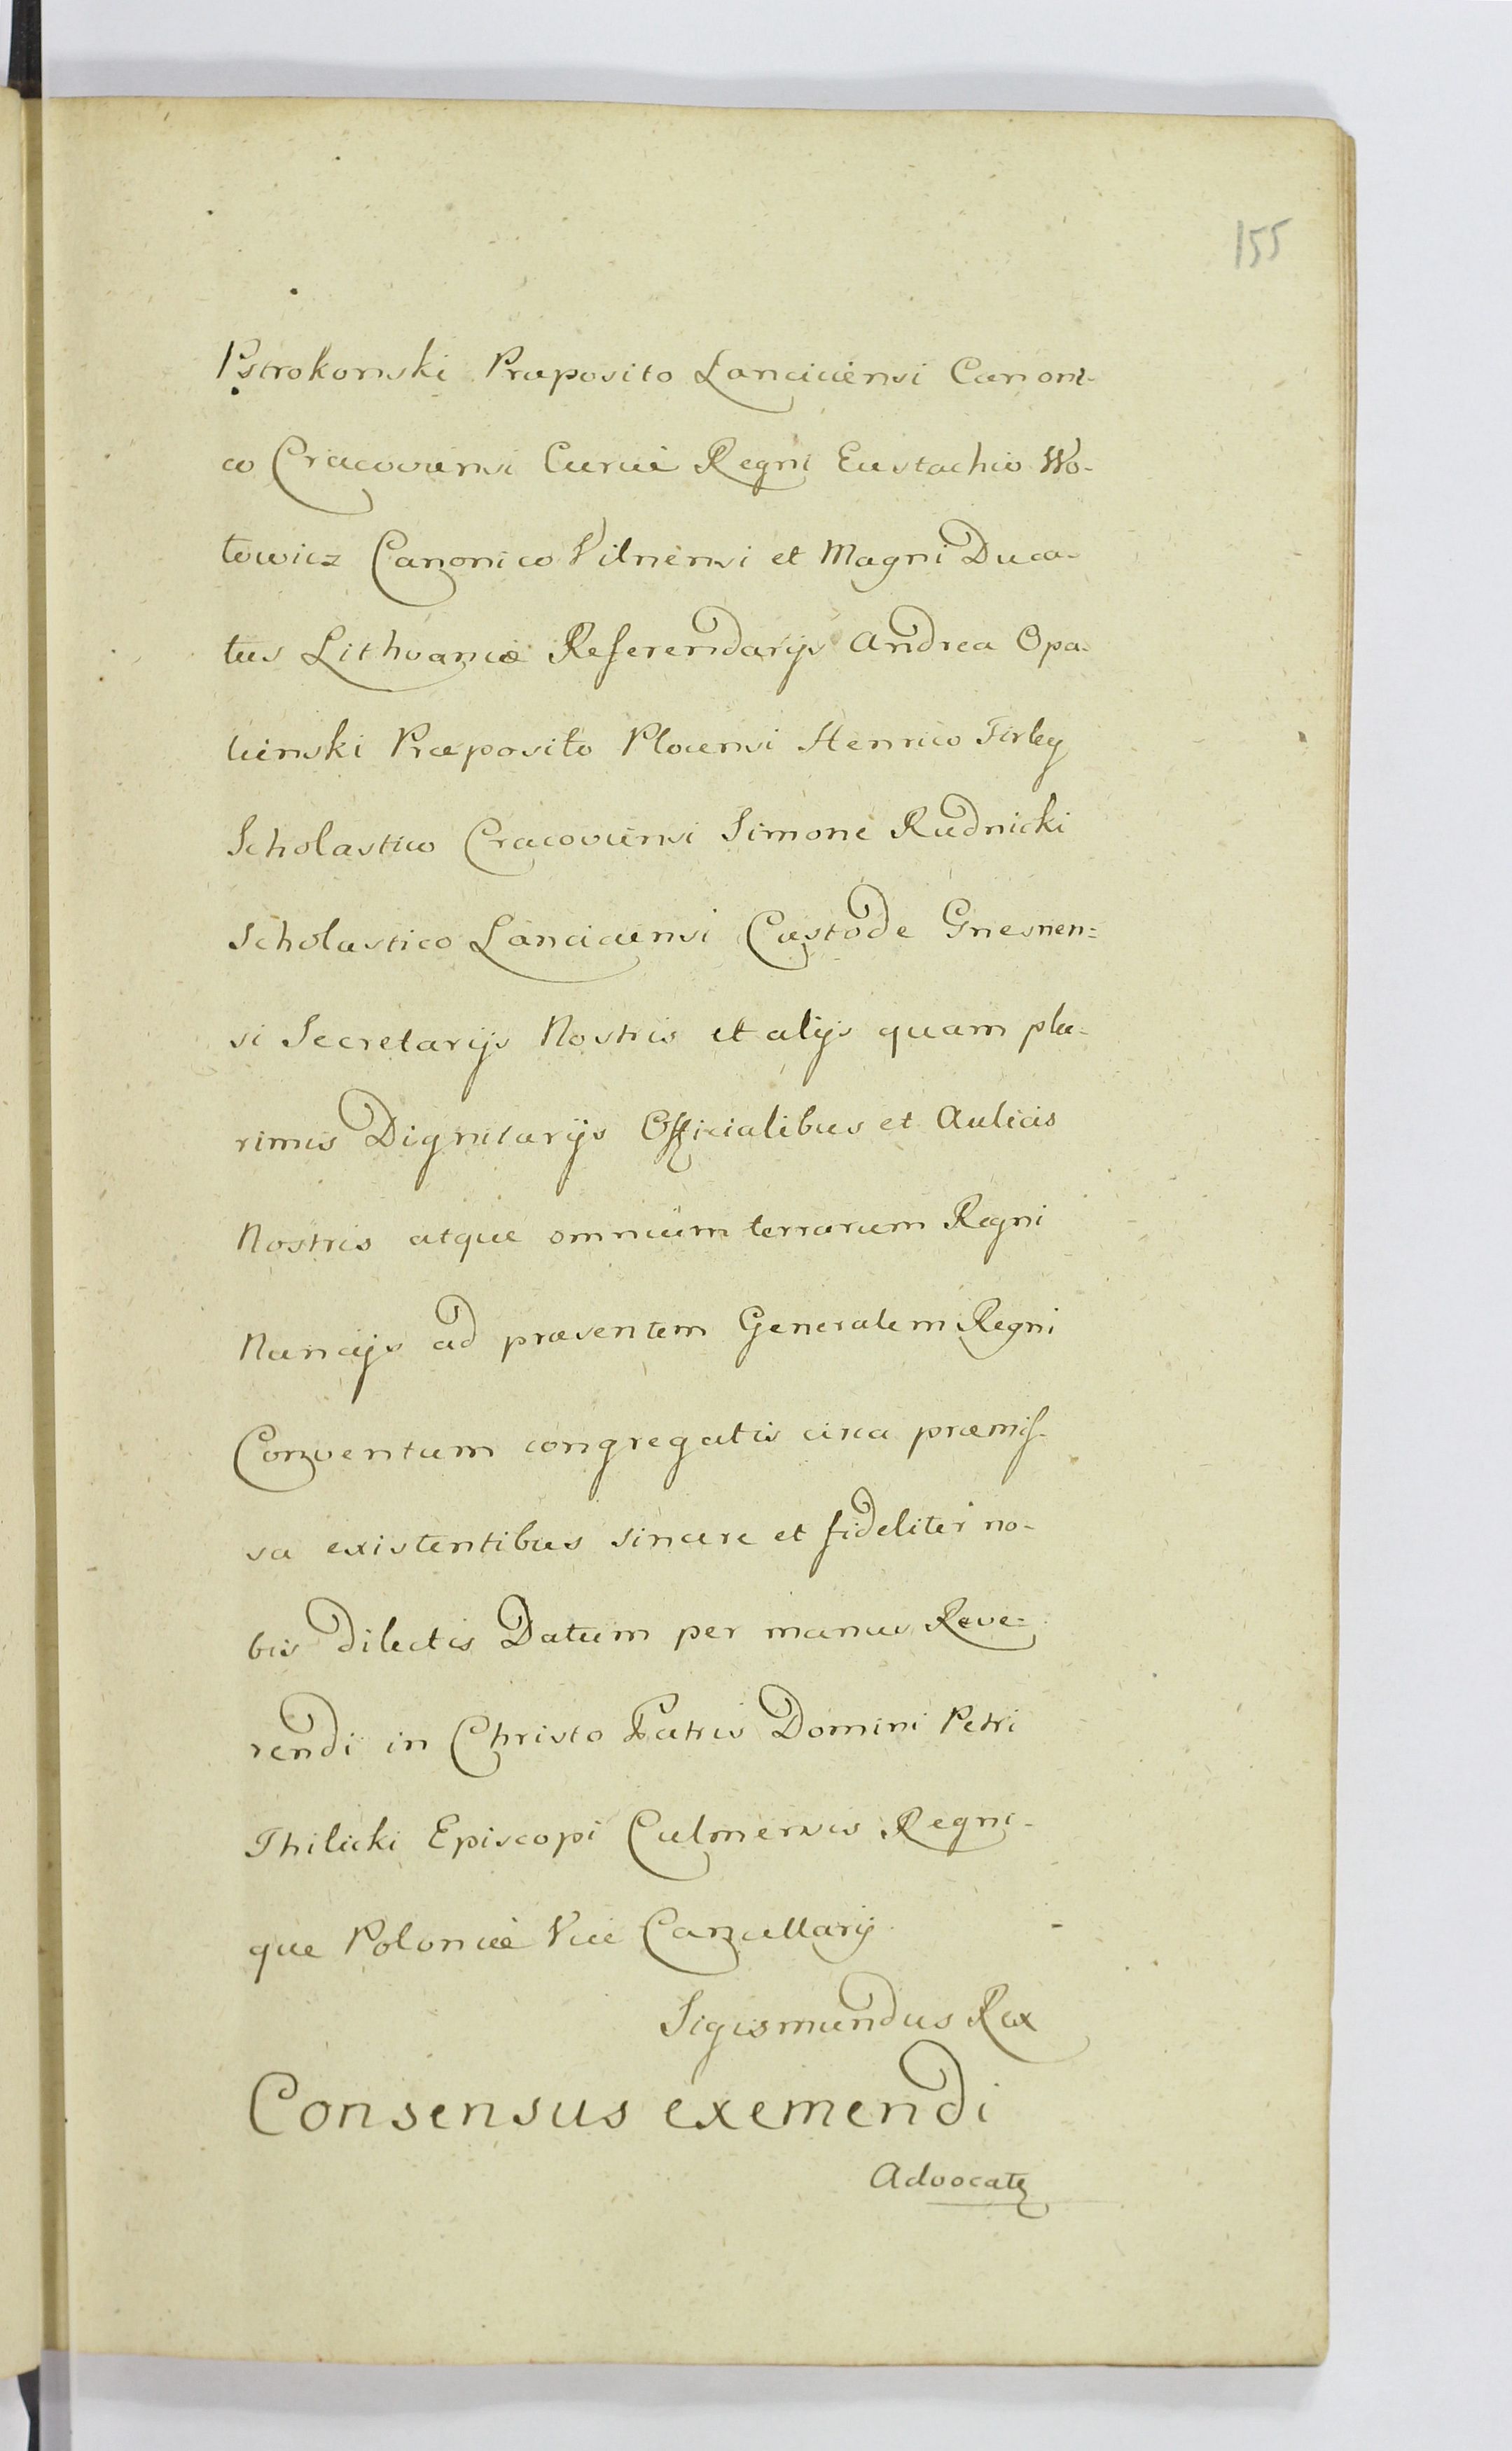 155
Pstrokonski Præposito Lanciciensi Canoni-
co Cracoviensi Curiæ Regni Eustachio Wo-
łowicz Canonico Vilnensi et Magni Duca-
tus Lithvaniæ Referendarijs Andrea Opa-
lienski Præposito Plocensi Henrico Firley
Scholastico Cracoviensi Simone Rudnicki
Scholastico Lanciciensi Custode Gnesnen=
si Secretarijs Nostris et alijs quam plu-
rimis Dignitarijs Officialibus et Aulicis
Nostris atque omnium terrarum Regni
Nuncijs ad præsentem Generalem Regni
Conventum congregatis circa præmis-
sa existentibus sincere et fideliter no-
bis dilectis Datum per manus Reve=
rendi in Christo Patris Domini Petri
Thilicki Episcopi Culmensis Regni-
que Poloniæ Vice Cancellarij
Sigismundus Rex
Consensus exemendi
Advocatą